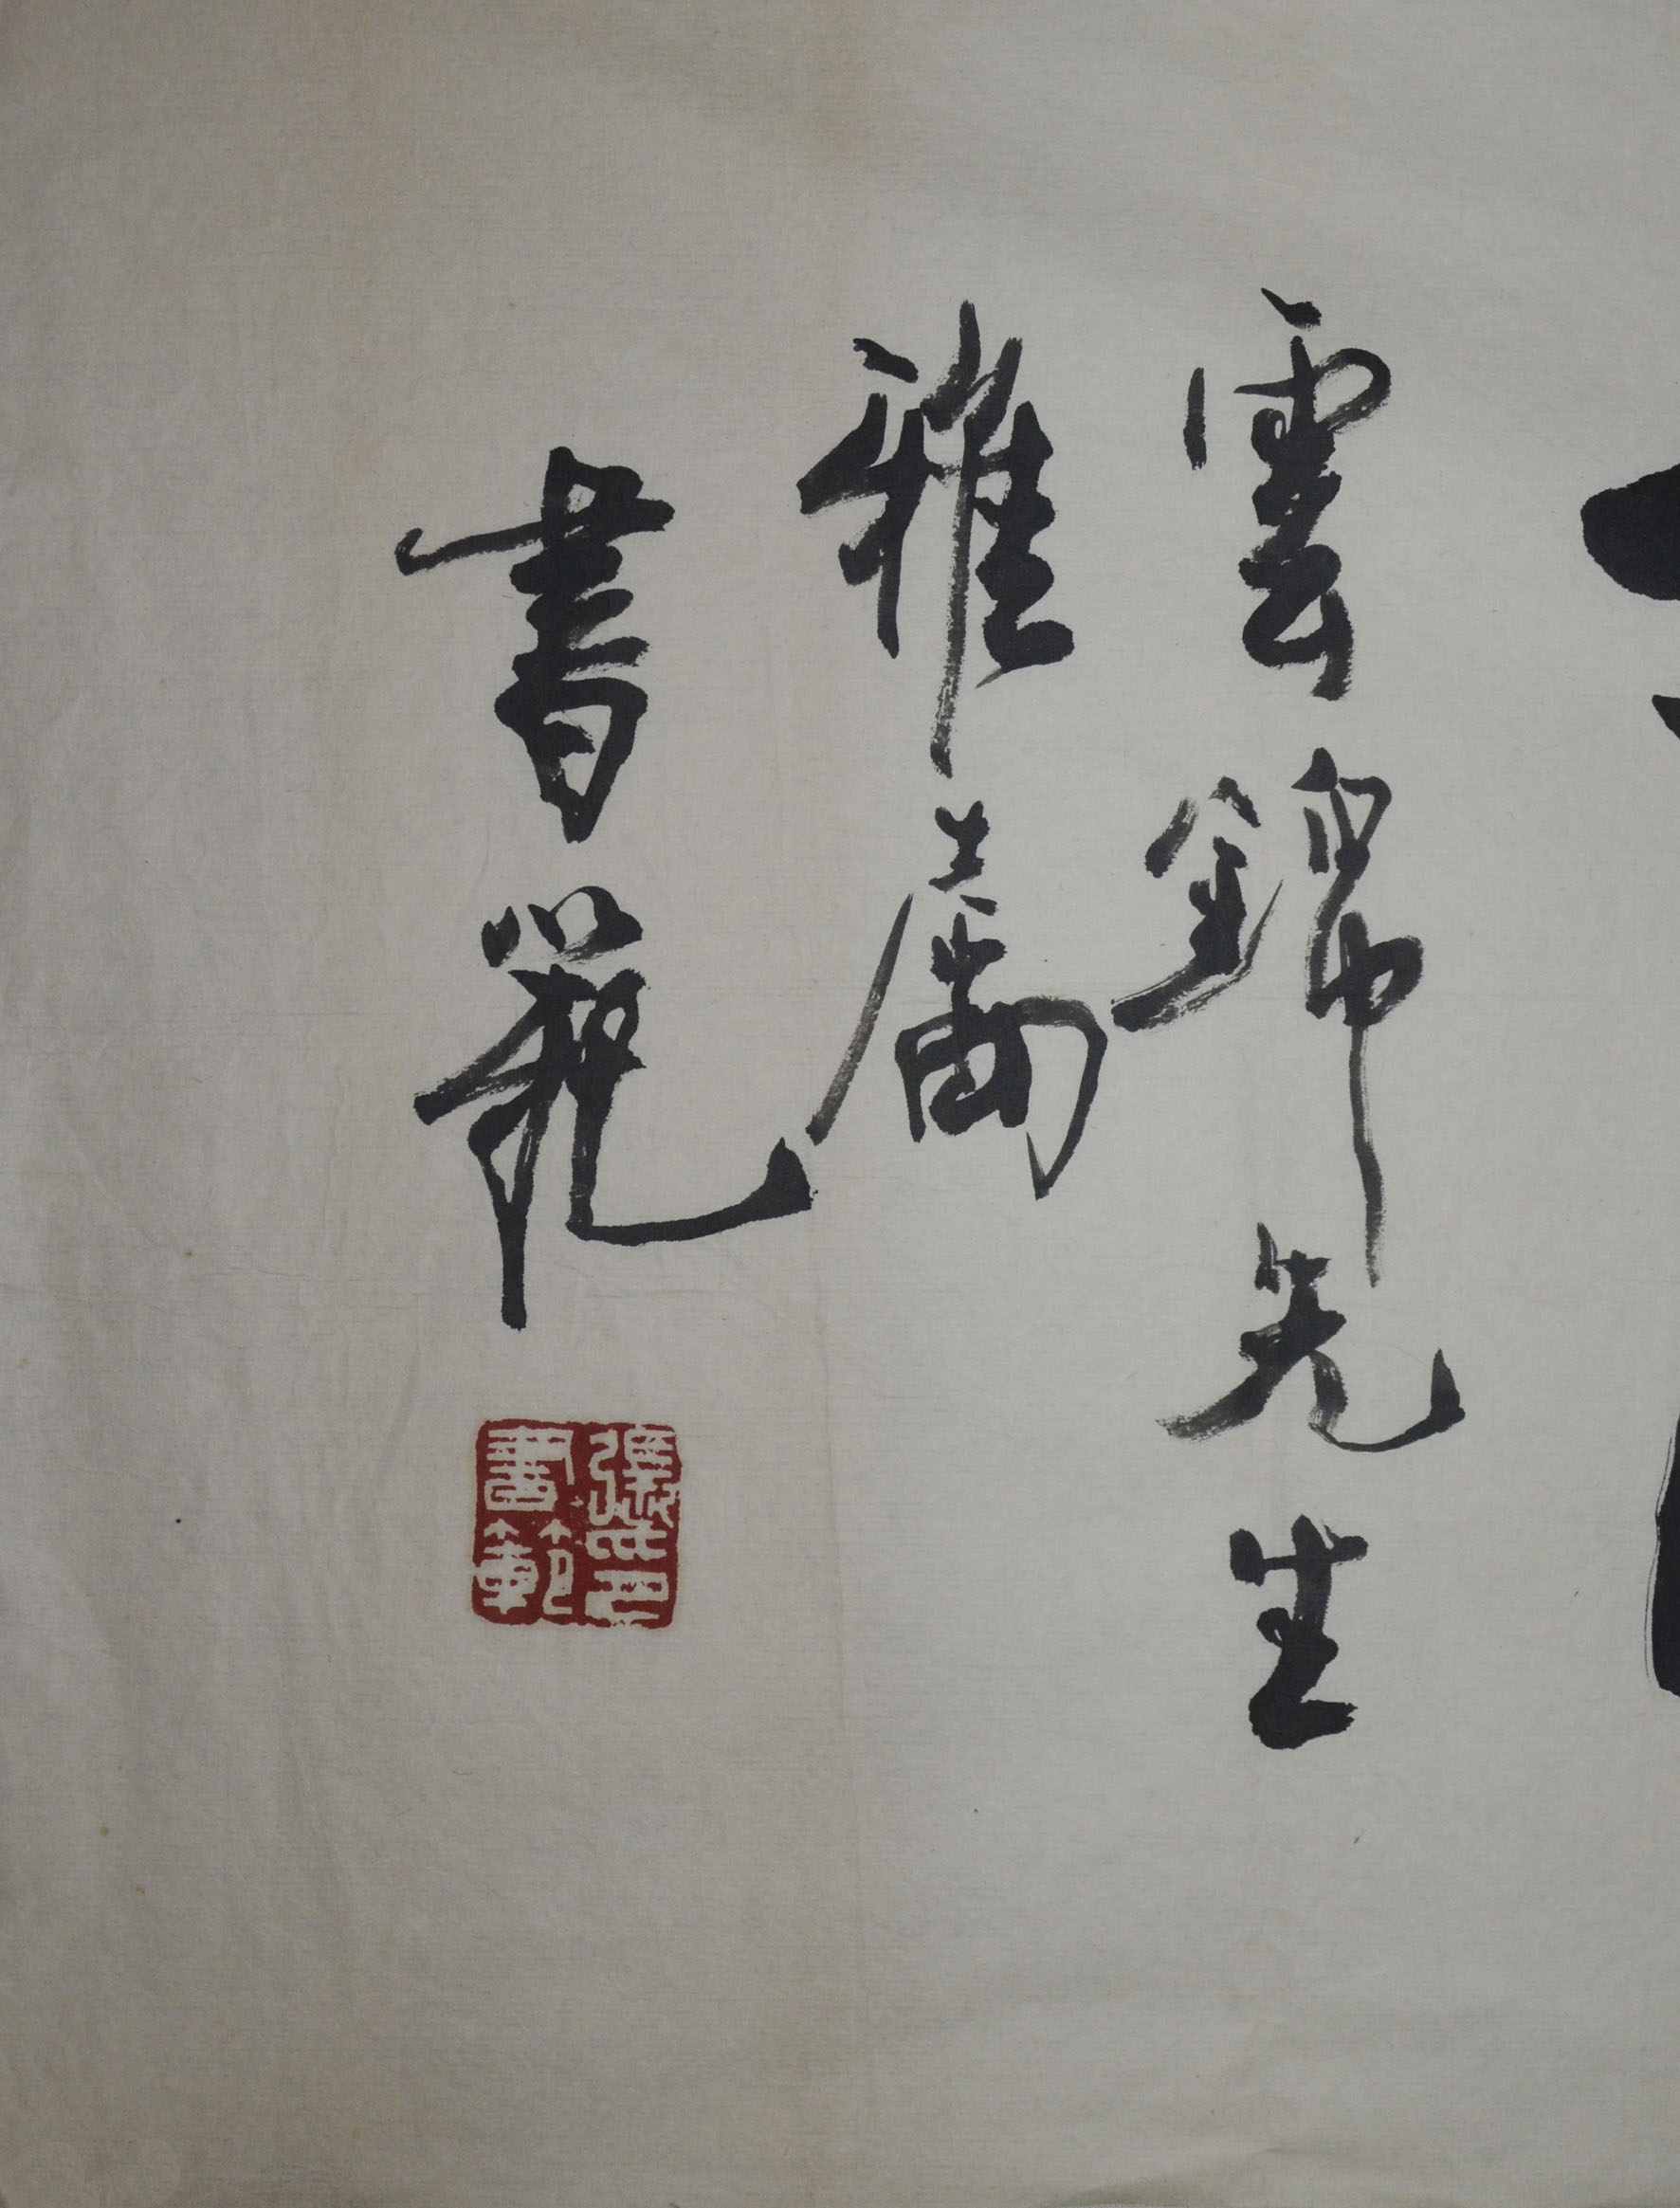 雲錦先生
雅屬
書範
張氏書範